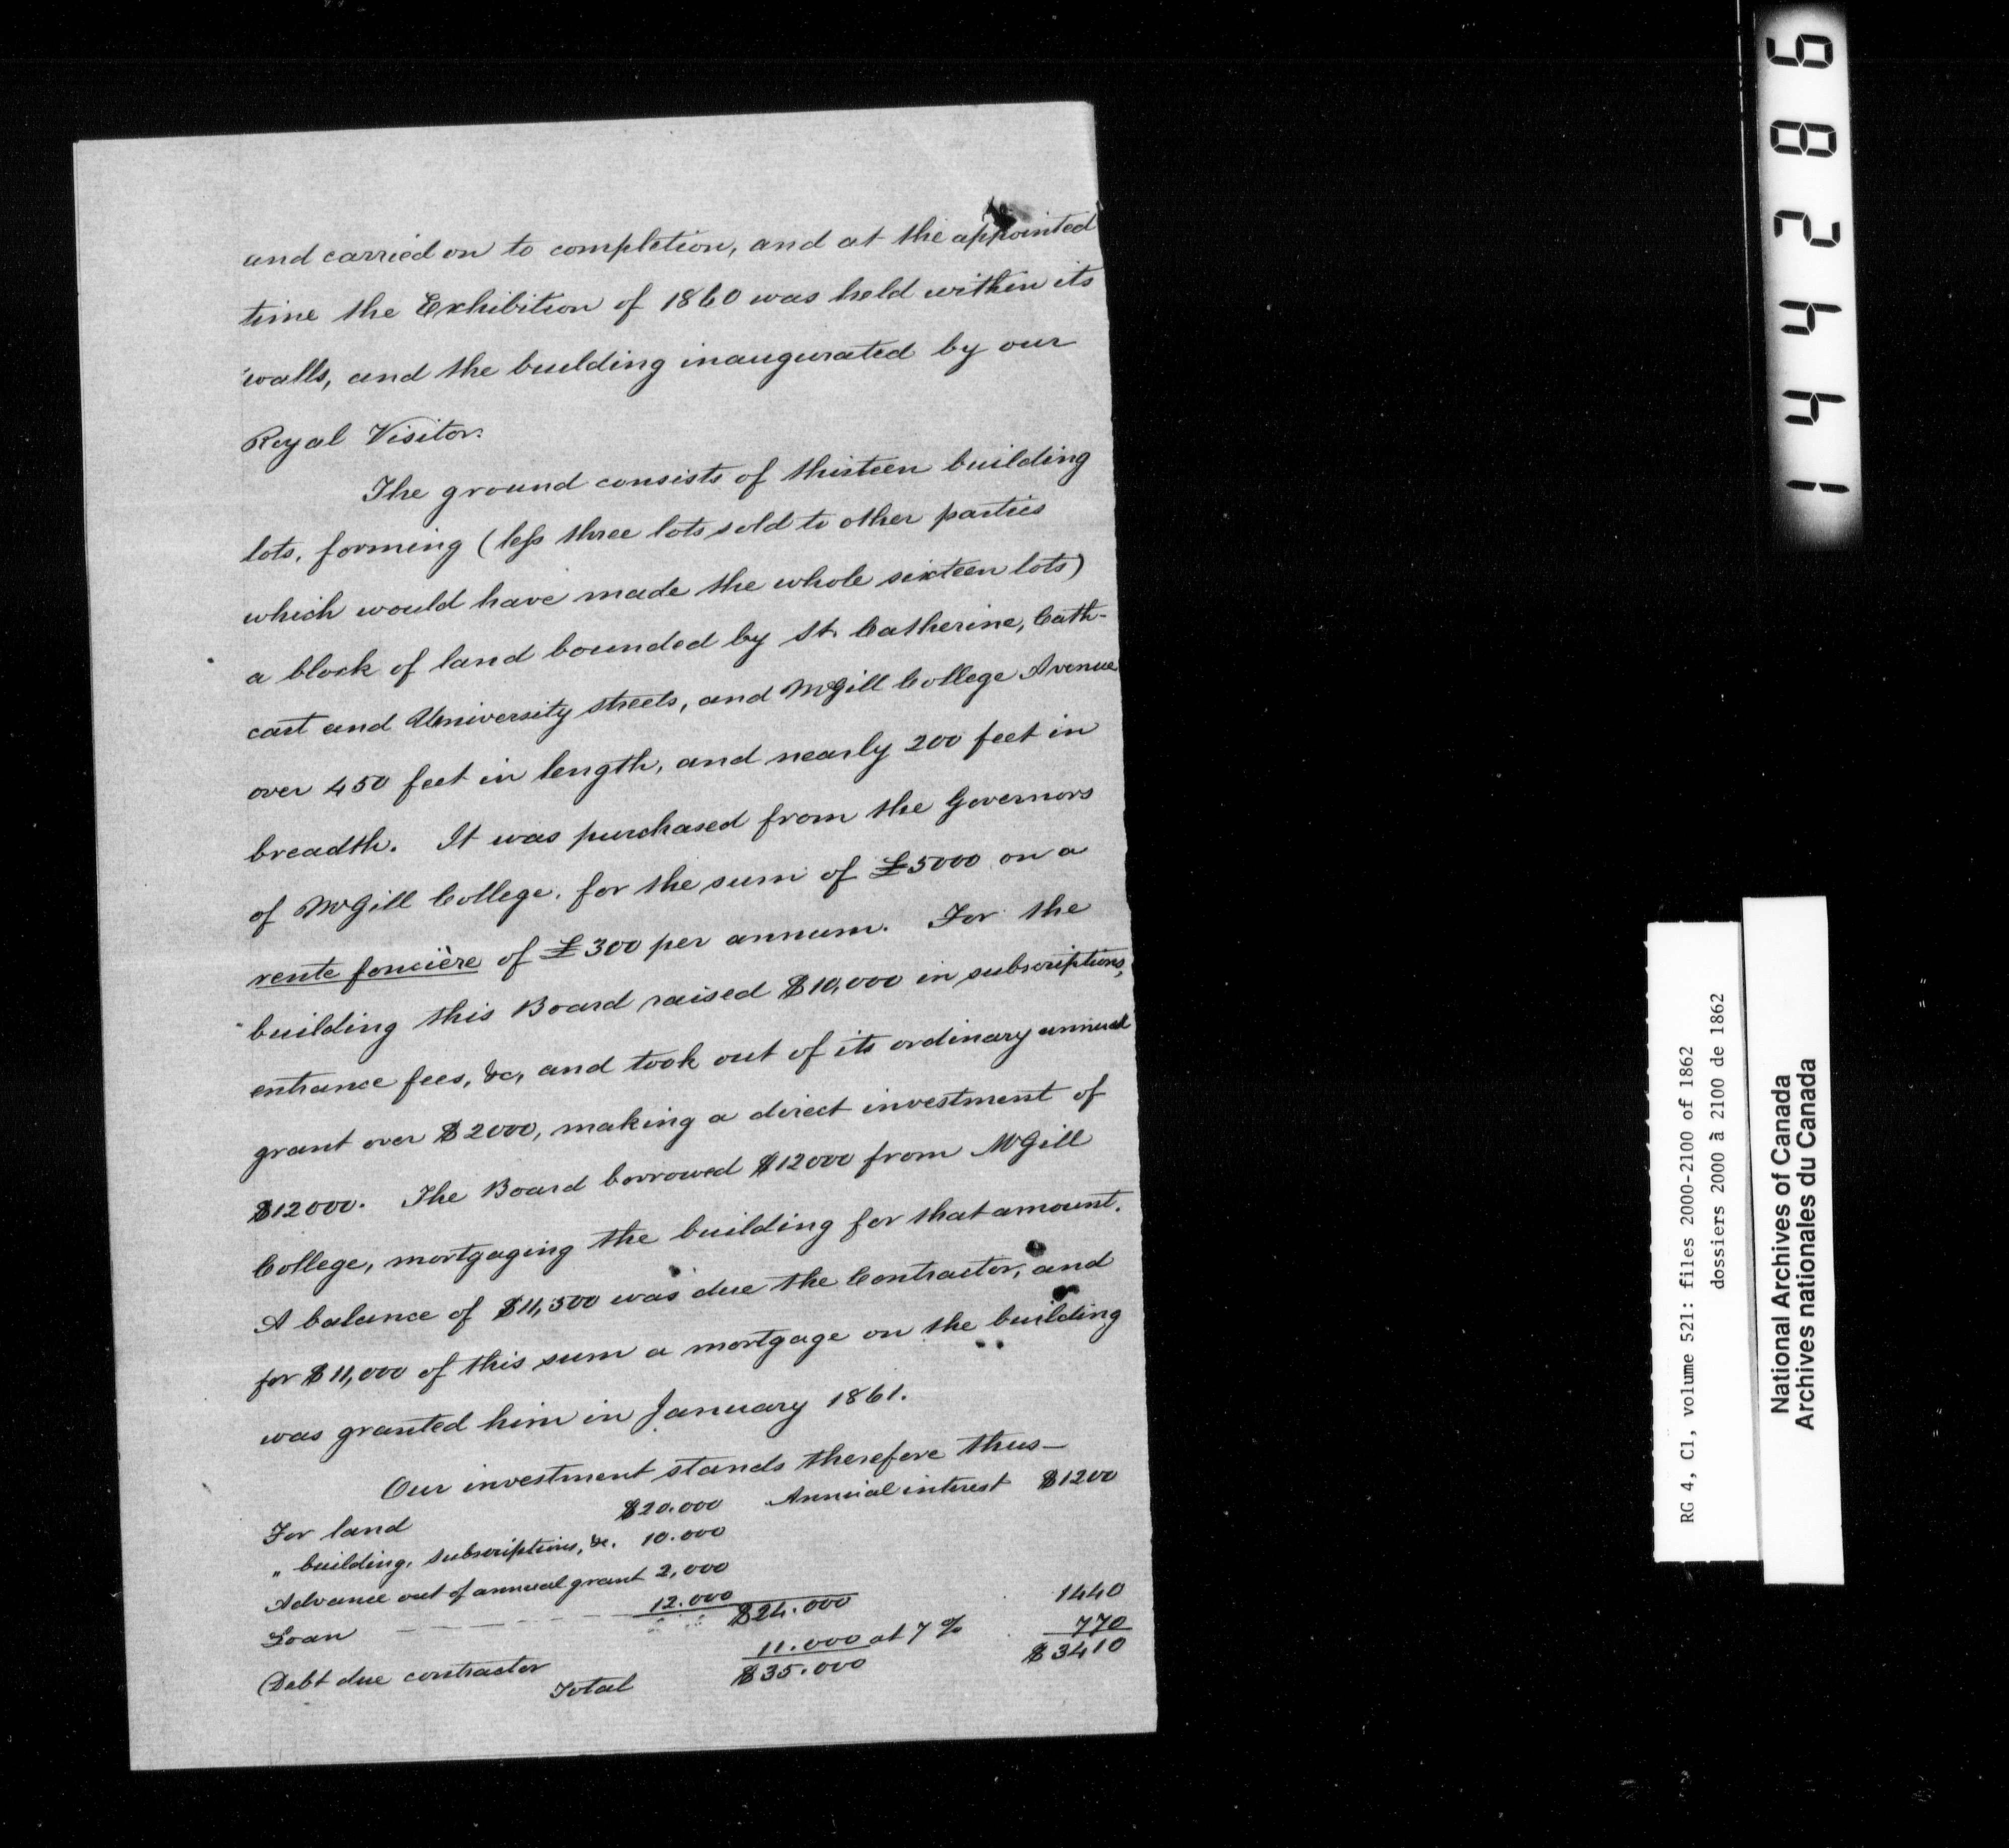 and carried on to completion, and at the appointed
time the Exhibition of 1860 was held within its
walls, and the building inaugurated by our
Royal Visitor.
The ground consists of thirteen building
lots, forming (less three lots sold to other parties
which would have made the whole sixteen lots)
a block of land bounded by St. Catherine, Cath-
cart and University streets, and McGill College Avenue
over 450 feet in length, and nearly 200 feet in
breadth. It was purchased from the Governors
of McGill College, for the sum of £5000 on a
rente foncière of £300 per annum. For the
building this Board raised $10,000 in subscriptions,
entrance fees, &c, and took out of its ordinary annual
grant over $2000, making a direct investment of
$12000. The Board borrowed $12000 from McGill
College, mortgaging the building for that amount.
A balance of $11,500 was due the Contractor, and
for $11,000 of this sum a mortgage on the building
was granted him in January 1861.
Our investment stands therefore thus—
For land $20.000 Annual interest $1200
" building, subscriptions, &c. 10.000
Advance out of annual grant 2,000
Loan 12.000 $24.000 1440
Debt due contractor 11.000 at 7 % 770
Total $35.000 $3410
1 4 4 2 8 6
RG 4, C1, volume 521: files 2000-2100 of 1862
dossiers 2000 à 2100 de 1862
National Archives of Canada
Archives nationales du Canada